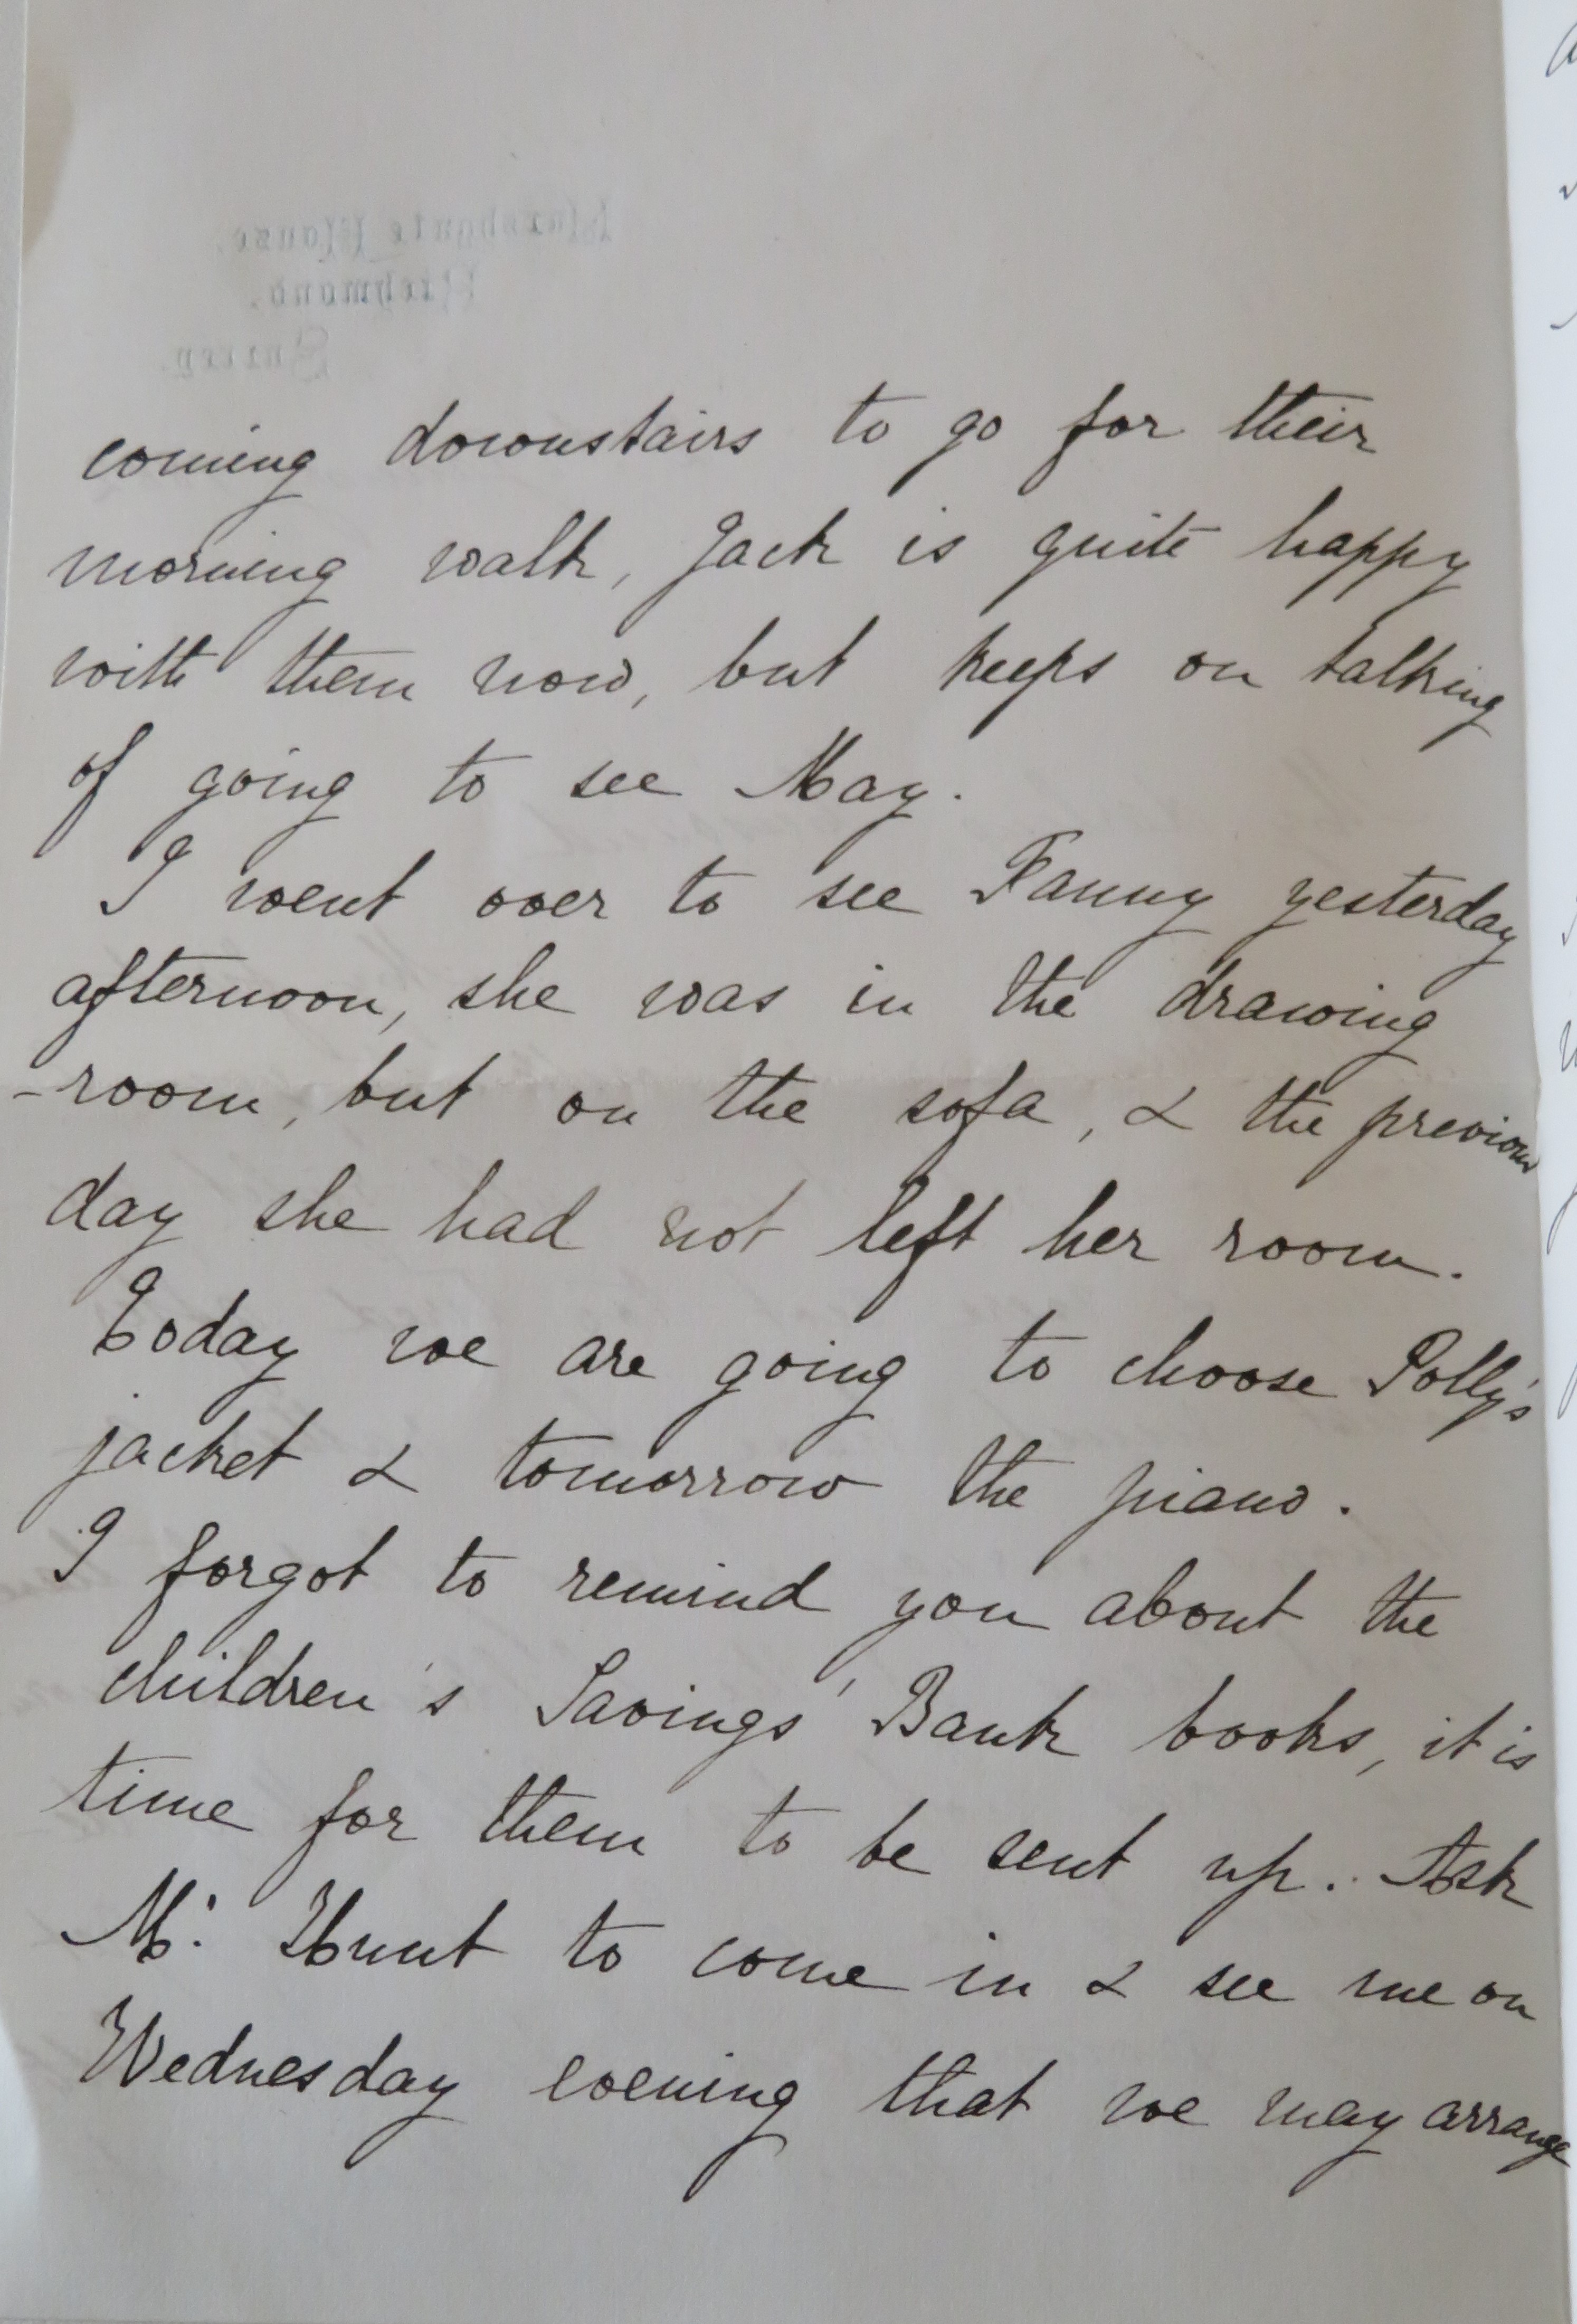 Marshgate House.
Richmond.
Surrey.
coming downstairs to go for their
morning walk, Jack is quite happy
with them now, but keeps on talking
of going to see May.
I went over to see Fanny yesterday
afternoon, she was in the drawing
-room, but on the sofa, & the previous
day she had not left her room.
Today we are going to choose Polly's
jacket & tomorrow the piano.
I forgot to remind you about the
children's Savings' Bank books, it is
time for them to be sent up. Ask
Mr Hunt to come in & see me on
Wednesday evening that we may arrange